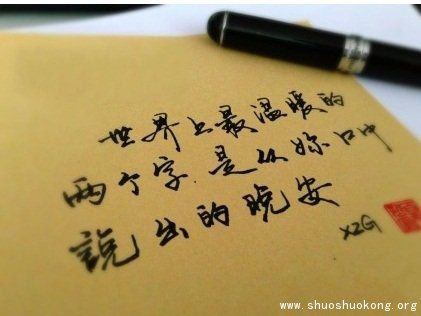 世界上最温暖的
两个字.是从妳口中
說出的晚安
XZG
www.shuoshuokong.org